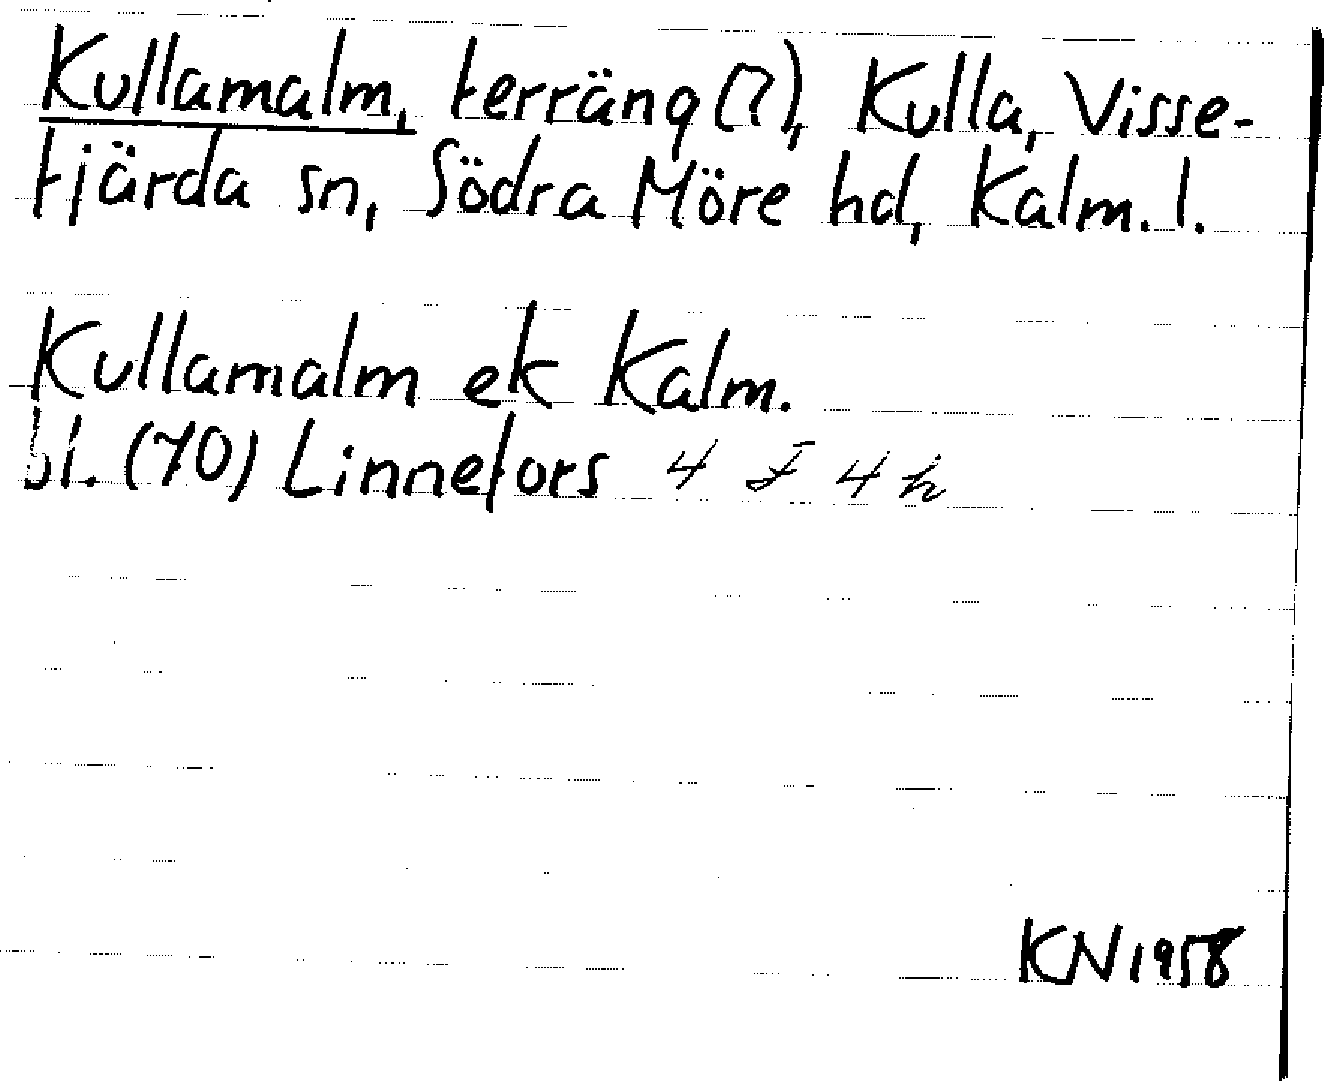 Kullamalm, terräng (?), Kulla, Visse-
fjärda sn, Södra Möre hd, Kalm. l.
Kullamalm ek Kalm.
bl. (70) Linnefors 4 F 4 h
KN 1958